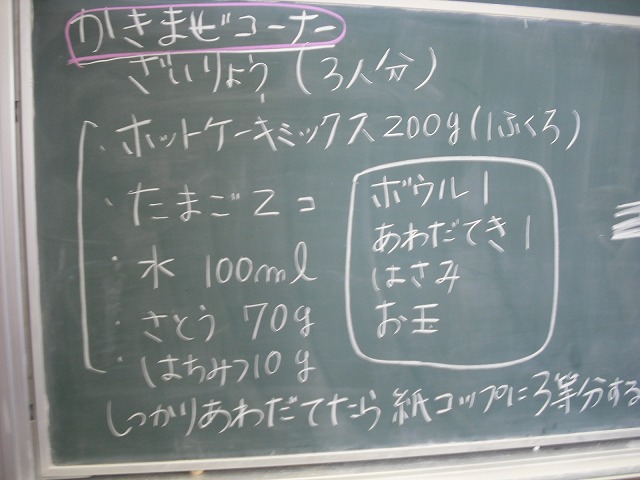 かきまぜコーナー
ざいりょう(3人分)
・ホットケーキミックス200g(1ふくろ)
・たまご2コ
・水 100ml
・さとう 70g
・はちみつ10g
ボウル1
あわだてき1
はさみ
お玉
しっかりあわだてたら紙コップに3等分する